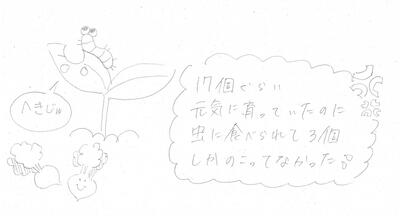 へきじゅ
17個ぐらい
元気に育っていたのに
虫に食べられて3個
しかのこってなかった